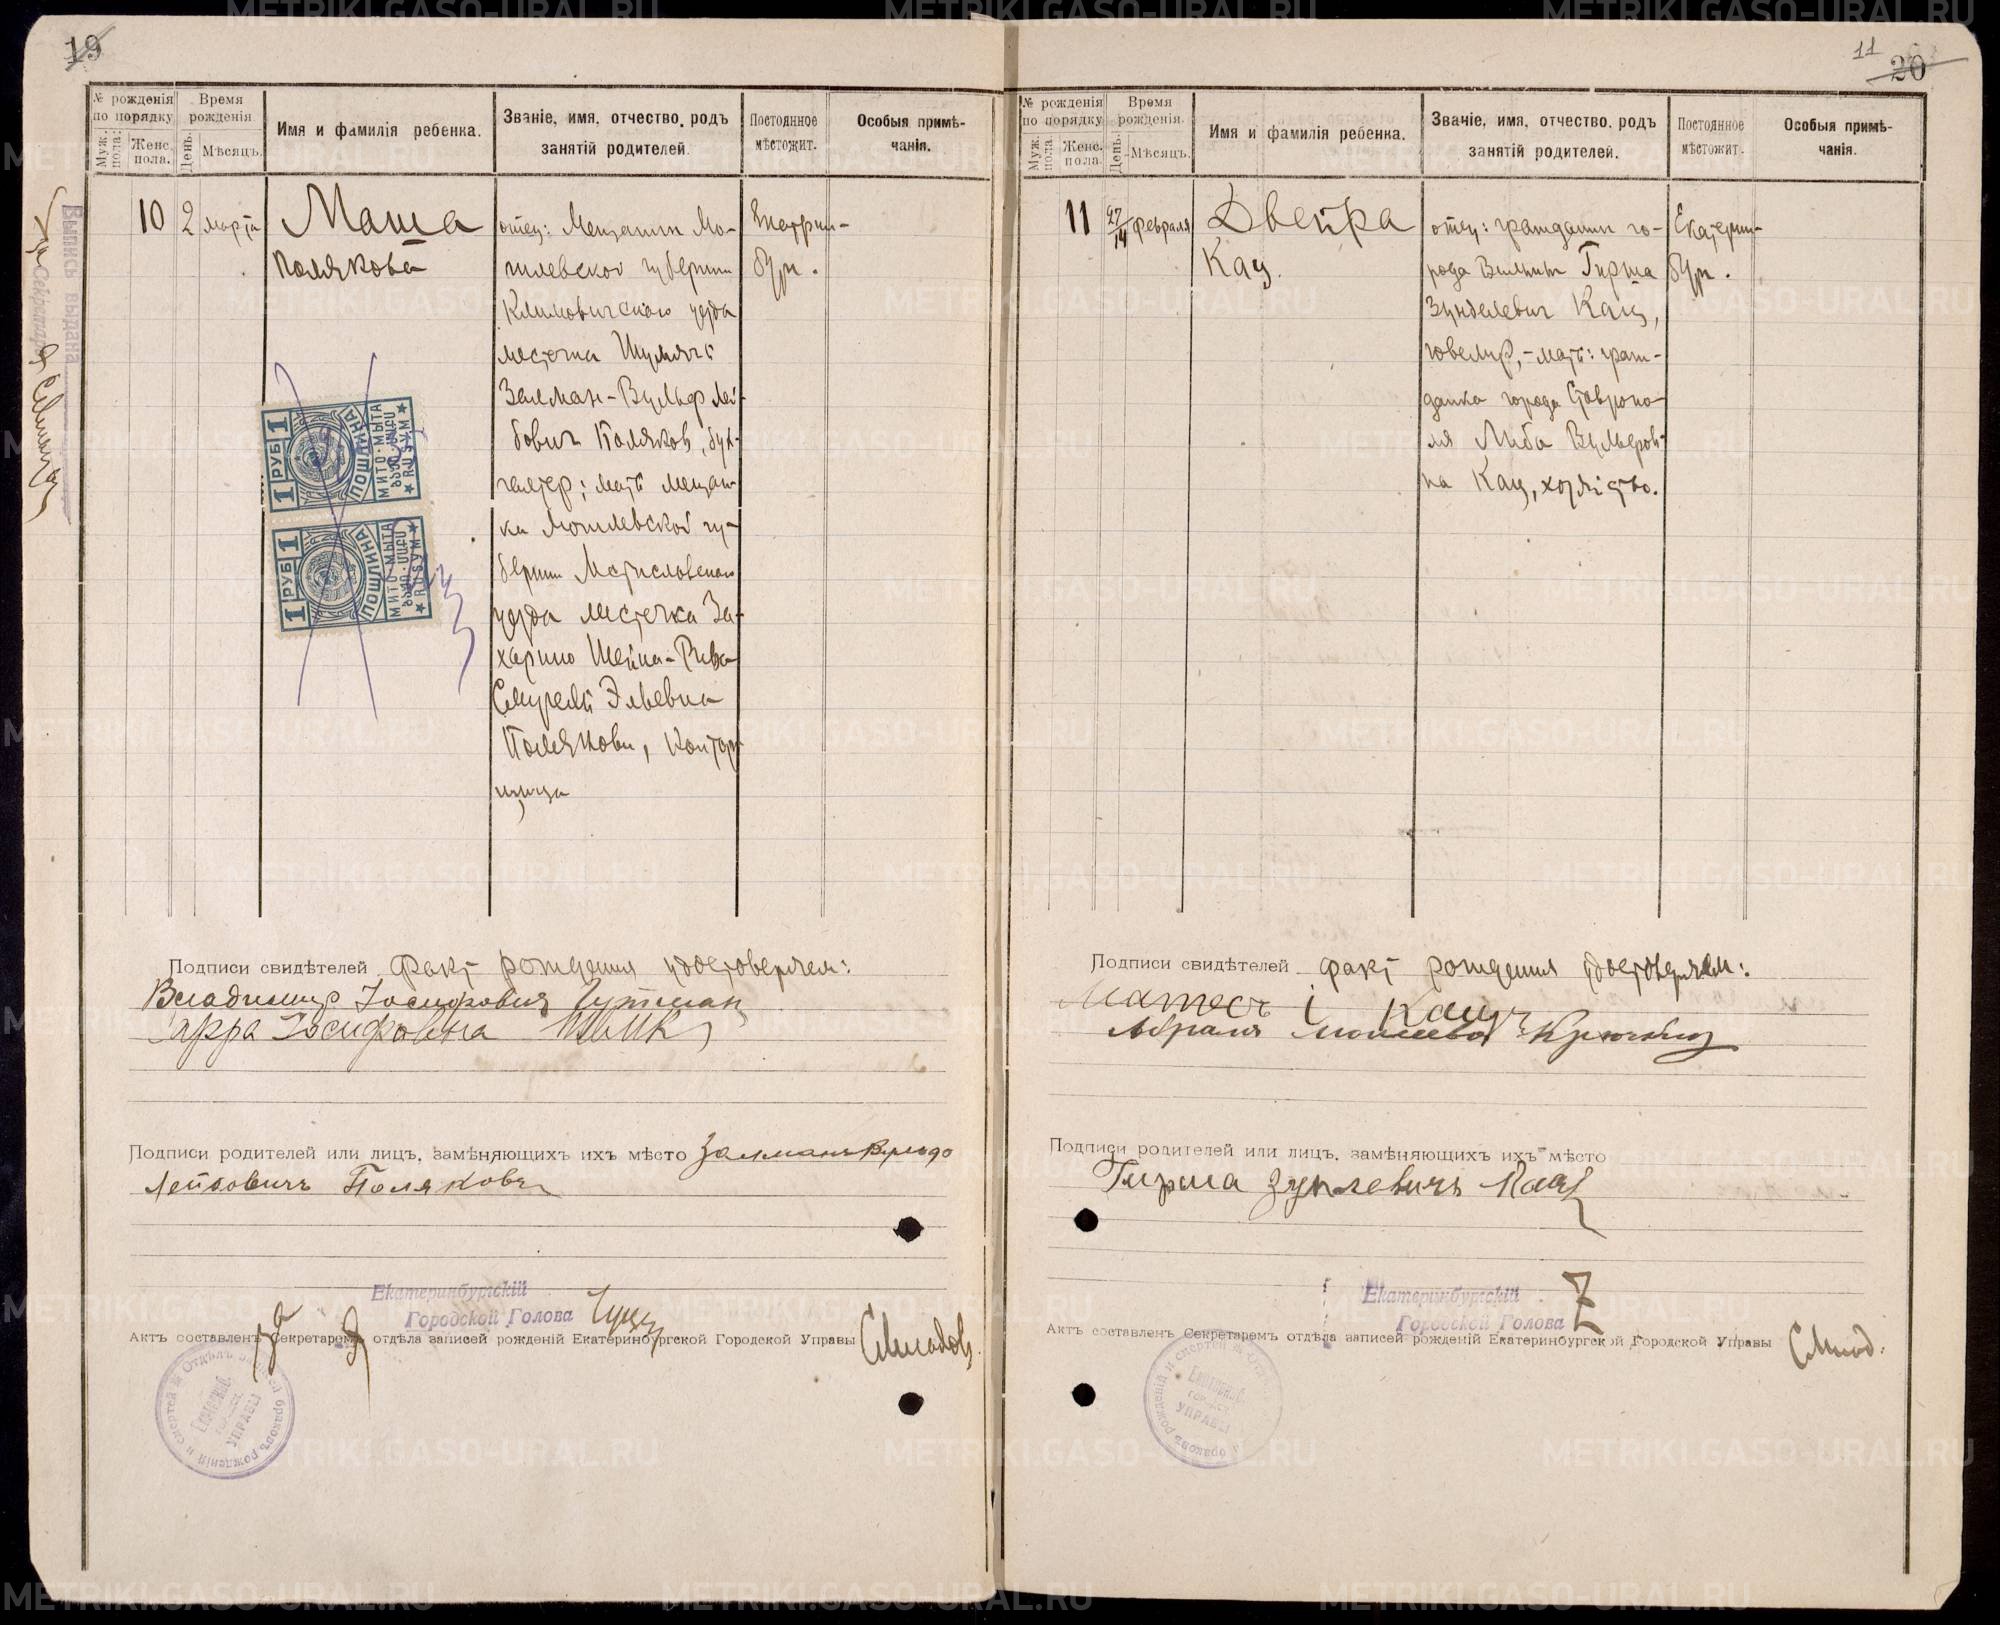 19
№ рожденія по порядку
Муж. пола.
Женс. пола.
Время рожденія.
День.
Мѣсяцъ.
Имя и фамилія ребенка.
Званіе, имя, отчество, родъ занятій родителей.
Постоянное мѣстожит.
Особыя примѣчанія.
10
2
марта
Маша
Полякова
отец: Мещанин Мо-
гилевской губернии
Климовичского уезда
местечка Шумячи
Залман-Вульф Лей-
бович Поляков, бух-
галтер; мать мещан-
ка Могилевской гу-
бернии Мстиславского
уезда местечка За-
харино Шейна-Рива
Эльевна
Полякова, контор-
щица
Екатерин-
бург.
Выпись выдана
Секретарь
1 РУБ 1
ПОШЛИНА
МИТО·МЫТА
RUSUM
1 РУБ 1
ПОШЛИНА
МИТО·МЫТА
RUSUM
Подписи свидѣтелей факт рождения удостоверяем:
Владимир Іосифович Гутман
Сарра Іосифовна
Подписи родителей или лицъ, замѣняющихъ ихъ мѣсто Залманъ Вульфъ
Лейбовичъ Поляковъ
Екатеринбургскій
Городской Голова
за
Актъ составленъ Секретаремъ отдѣла записей рожденій Екатеринбургской Городской Управы
Отдѣлъ записей браковъ рожденій и смертей
УПРАВЫ
11
20
№ рожденія по порядку
Муж. пола
Женс. пола.
Время рожденія.
День.
Мѣсяцъ.
Имя и фамилія ребенка.
Званіе, имя, отчество, родъ занятій родителей.
Постоянное мѣстожит.
Особыя примѣчанія.
11
27/14
февраля
Двейра
Кац.
отец: гражданин го-
рода Вильны Гирша
Зунделевич Кац,
ювелир, - мать: граж-
данка города Ставропо-
ля Либа Вульфов-
на Кац, хозяйство.
Екатерин-
бург.
Подписи свидѣтелей факт рождения удостоверяем:
Матесъ І Кацъ
Абрам
Подписи родителей или лицъ, замѣняющихъ ихъ мѣсто
Гирша Зунделевичъ Кацъ
Екатеринбургскій
Городской Голова
Актъ составленъ Секретаремъ отдѣла записей рожденій Екатеринбургской Городской Управы
УПРАВЫ
METRIKI.GASO-URAL.RU